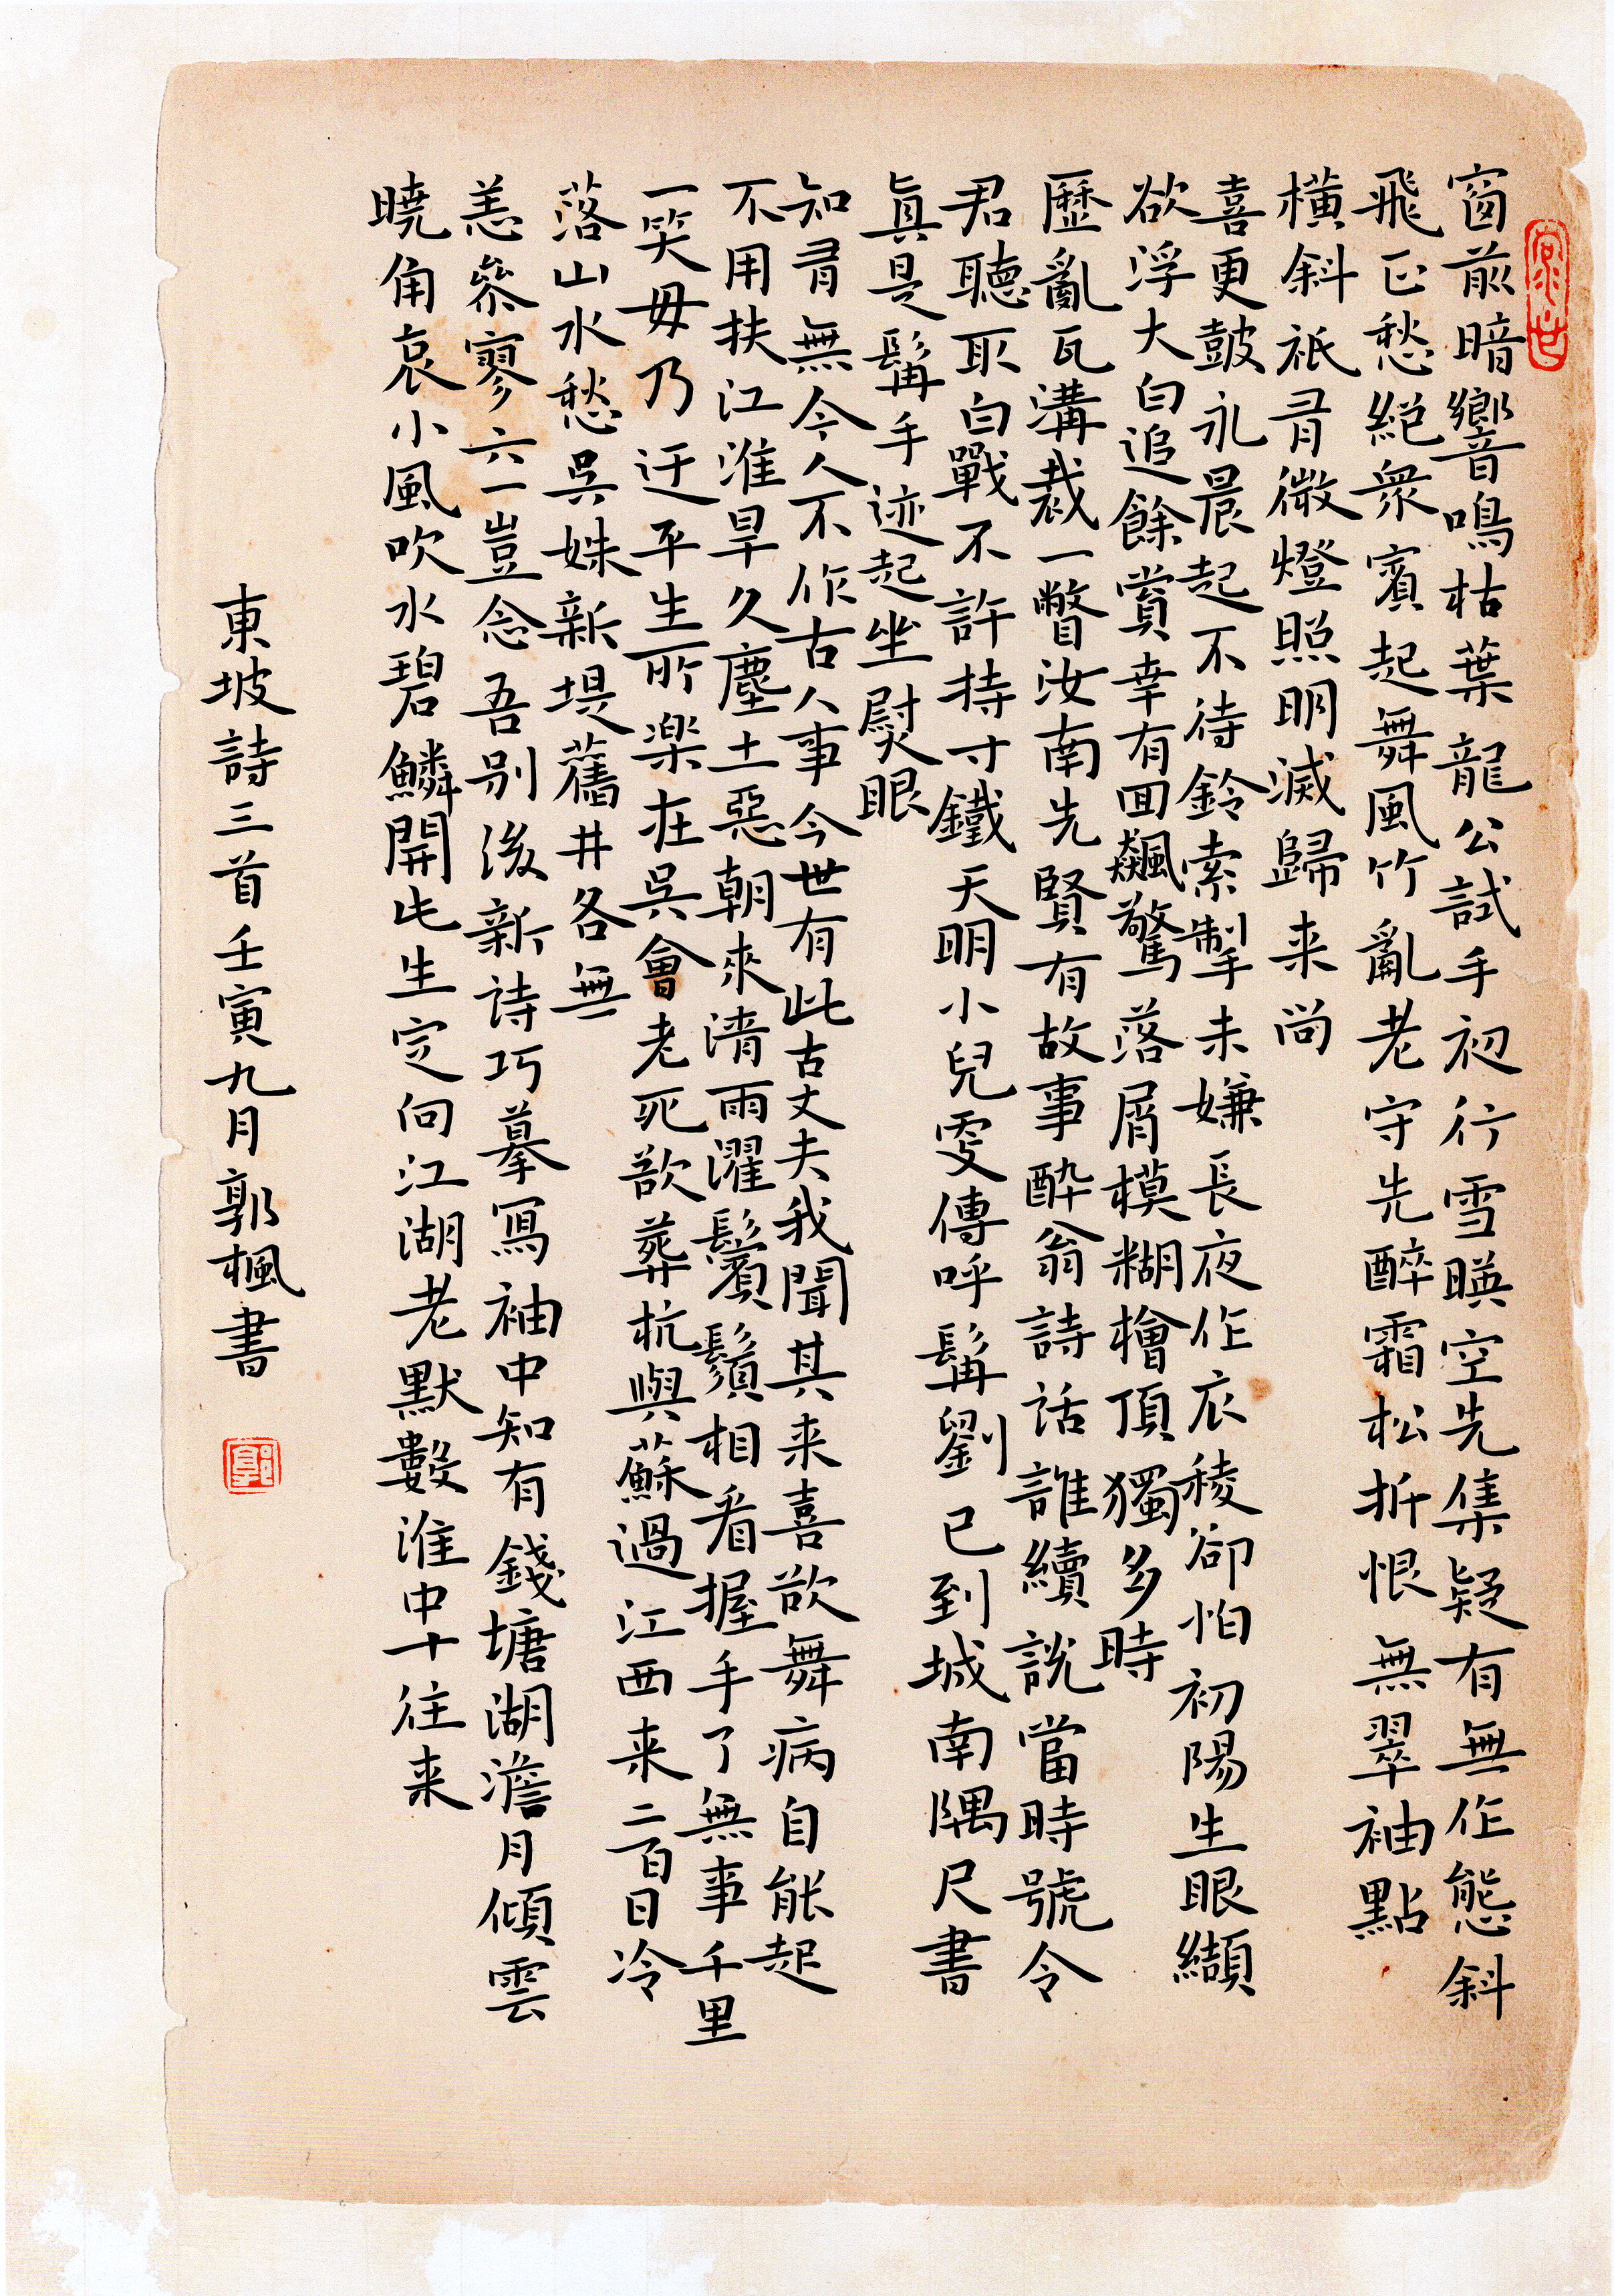 窗前暗響鳴枯葉龍公試手初行雪暎空先集疑有無作態斜
飛正愁絕衆賓起舞風竹亂老守先醉霜松折恨無翠袖點
橫斜祇有微燈照明滅歸来尚
喜更鼓永晨起不待鈴索掣未嫌長夜作衣稜卻怕初陽生眼纈
欲浮大白追餘賞幸有回飆驚落屑模糊檜頂獨多時
歷亂瓦溝裁一瞥汝南先賢有故事醉翁詩話誰續說當時號令
君聽取白戰不許持寸鐵天明小兒更傳呼髯劉已到城南隅尺書
真是髯手迹起坐熨眼
知有無今人不作古人事今世有此古丈夫我聞其来喜欲舞病自能起
不用扶江淮旱久塵土惡朝來清雨濯鬢鬚相看握手了無事千里
一笑毋乃迂平生所樂在吳會老死欲葬杭與蘇過江西来二百日冷
落山水愁吳姝新堤舊井各無
恙參寥六一豈念吾別後新詩巧摹寫袖中知有錢塘湖澹月傾雲
曉角哀小風吹水碧鱗開此生定向江湖老默數淮中十往来
東坡詩三首壬寅九月郭楓書
郭